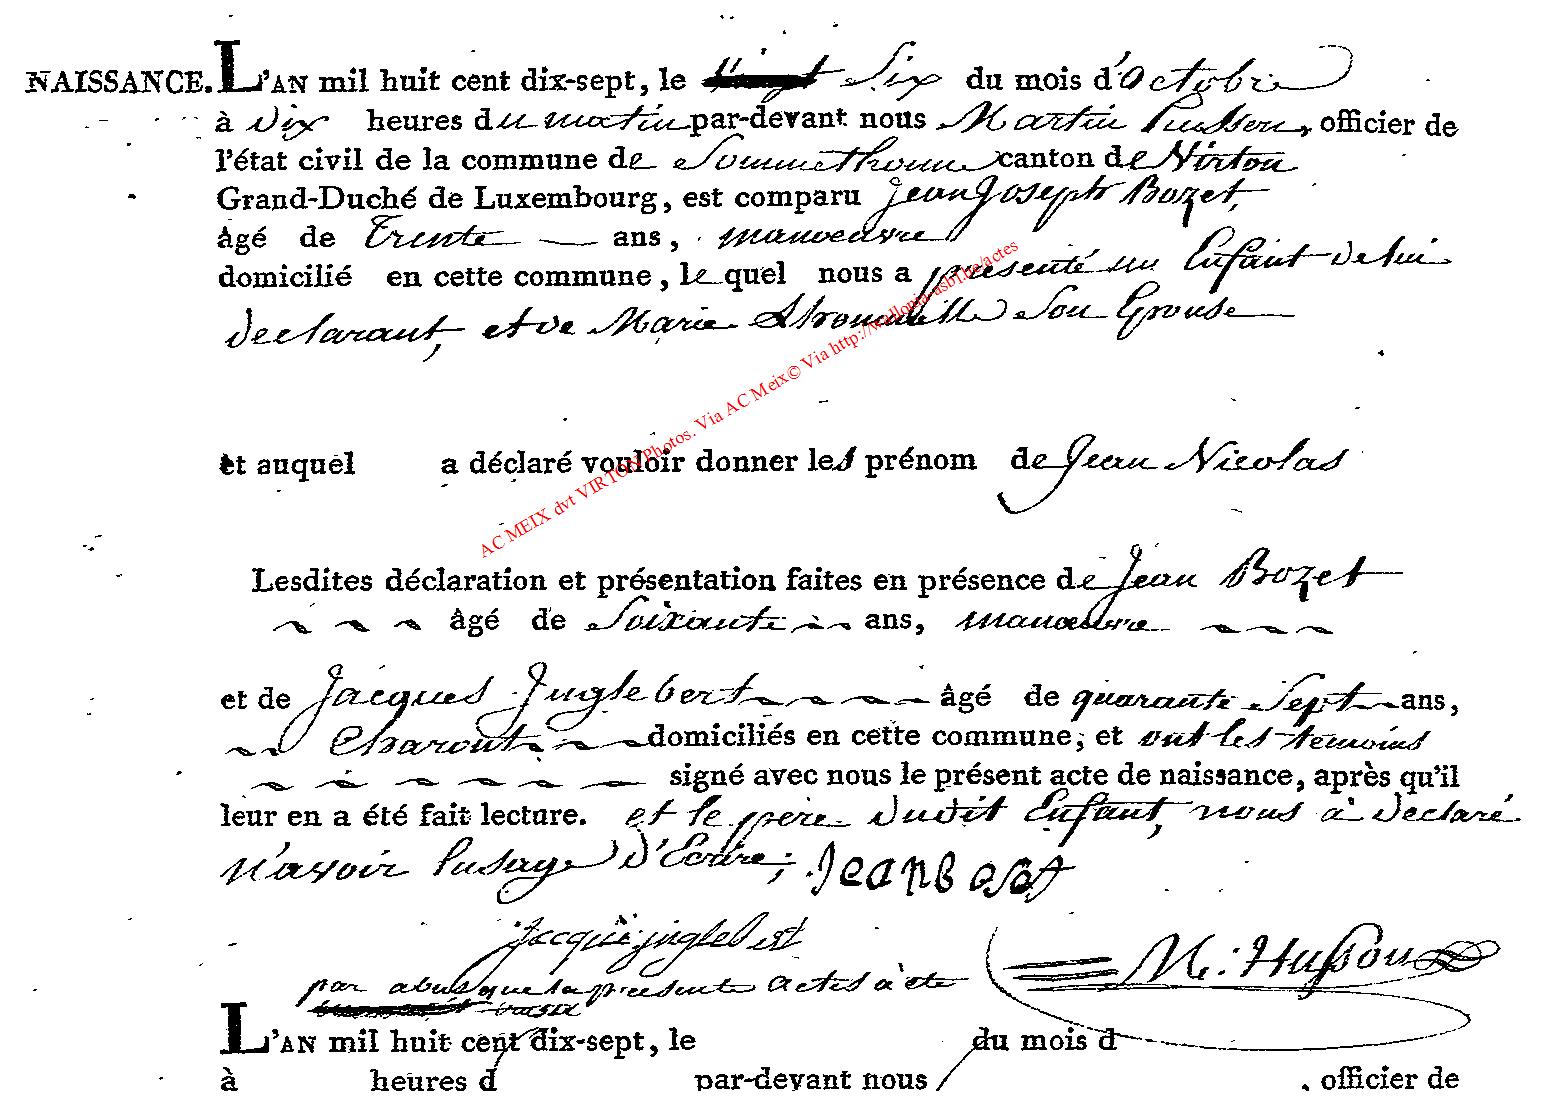 NAISSANCE. L'AN mil huit cent dix-sept, le vingt Six du mois d'Octobre
à Dix heures du matin par-devant nous Martin husson, officier de
l'état civil de la commune de Sommethonne canton de Virton
Grand-Duché de Luxembourg, est comparu Jean Joseph Bozet,
âgé de Trente ans, manoeuvre
domicilié en cette commune, lequel nous a présenté un Enfant de lui
declarant, et de Marie son Epouse
et auquel a déclaré vouloir donner les prénom de Jean Nicolas
Lesdites déclaration et présentation faites en présence de Jean Bozet
âgé de Soixante ans, manoeuvre
et de Jacques Inglebert âgé de quarante Sept ans,
Charon domiciliés en cette commune, et ont les temoins
signé avec nous le présent acte de naissance, après qu'il
leur en a été fait lecture. et le père dudit Enfant, nous à declaré
n'avoir lusage d'Ecrire;
jacque inglebert
M: Husson
par abus que la presente actes à été
L'AN mil huit cent dix-sept, le du mois d
à heures d par-devant nous , officier de
AC MEIX dvt VIRTON Photos. Via AC Meix© Via http://wallonia-asbl.be/actes